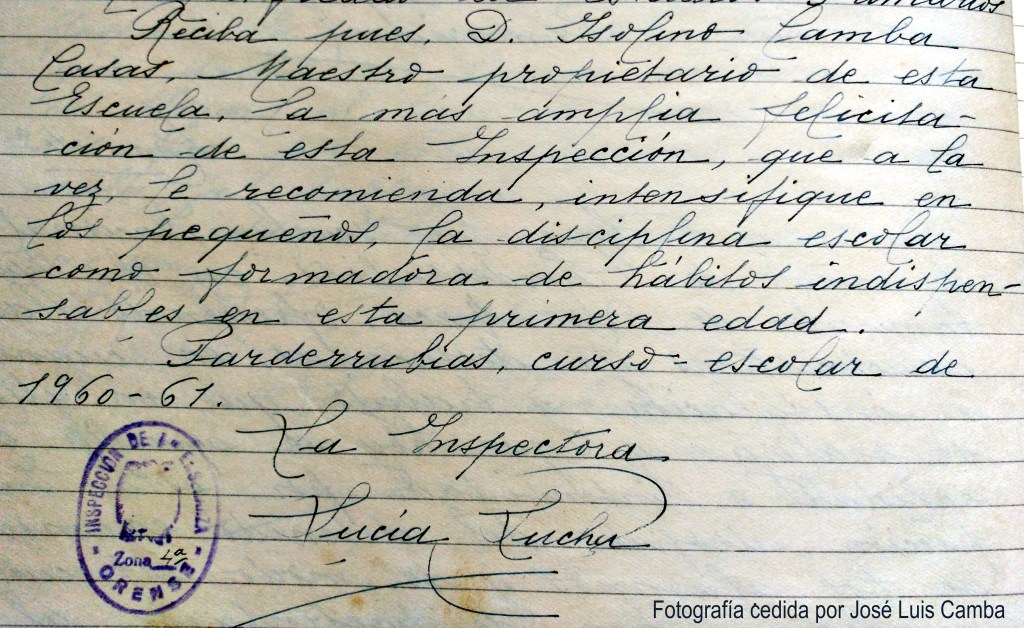 Reciba pues, D. Isolino Camba
Casas, Maestro propietario de esta
Escuela, la más amplia felicita-
ción de esta Inspección, que a la
vez, le recomienda, intensifique en
los pequeños, la disciplina escolar
como formadora de hábitos indispen-
sables en esta primera edad.
Parderrubias, curso-escolar de
1960-61.
La Inspectora
Lucía
INSPECCION DE 1ª ENSEÑANZA
Zona 4ª
ORENSE
Fotografía cedida por José Luis Camba